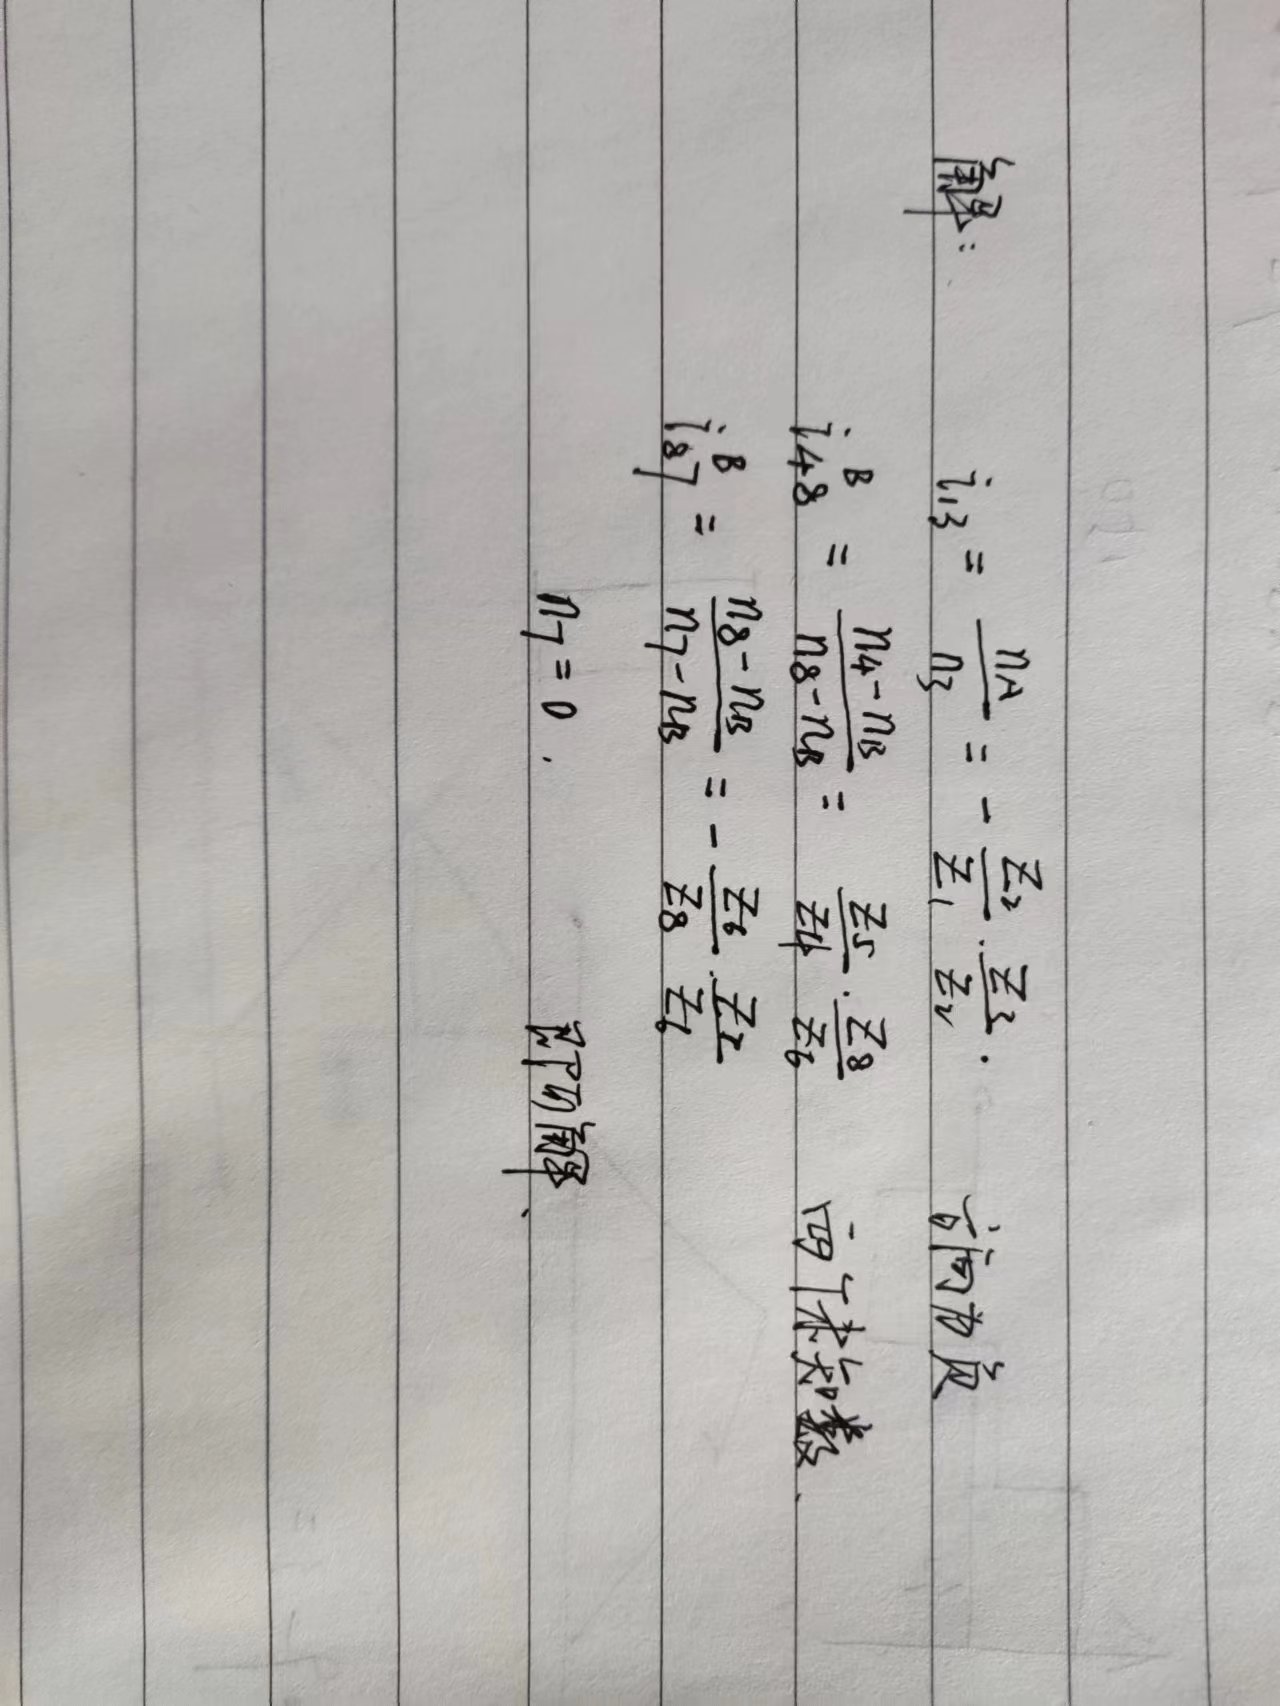 解:
i₁₃ = n_A/n₃ = - Z₂/Z₁ · Z₃/Z₂ . 方向为负
i₄₈^B = (n₄-n_B)/(n₈-n_B) = Z₅/Z₄ · Z₈/Z₆ 四个未知数.
i₈₇^B = (n₈-n_B)/(n₇-n_B) = - Z₆/Z₈ · Z₇/Z₆
n₇ = 0 . 即可解.